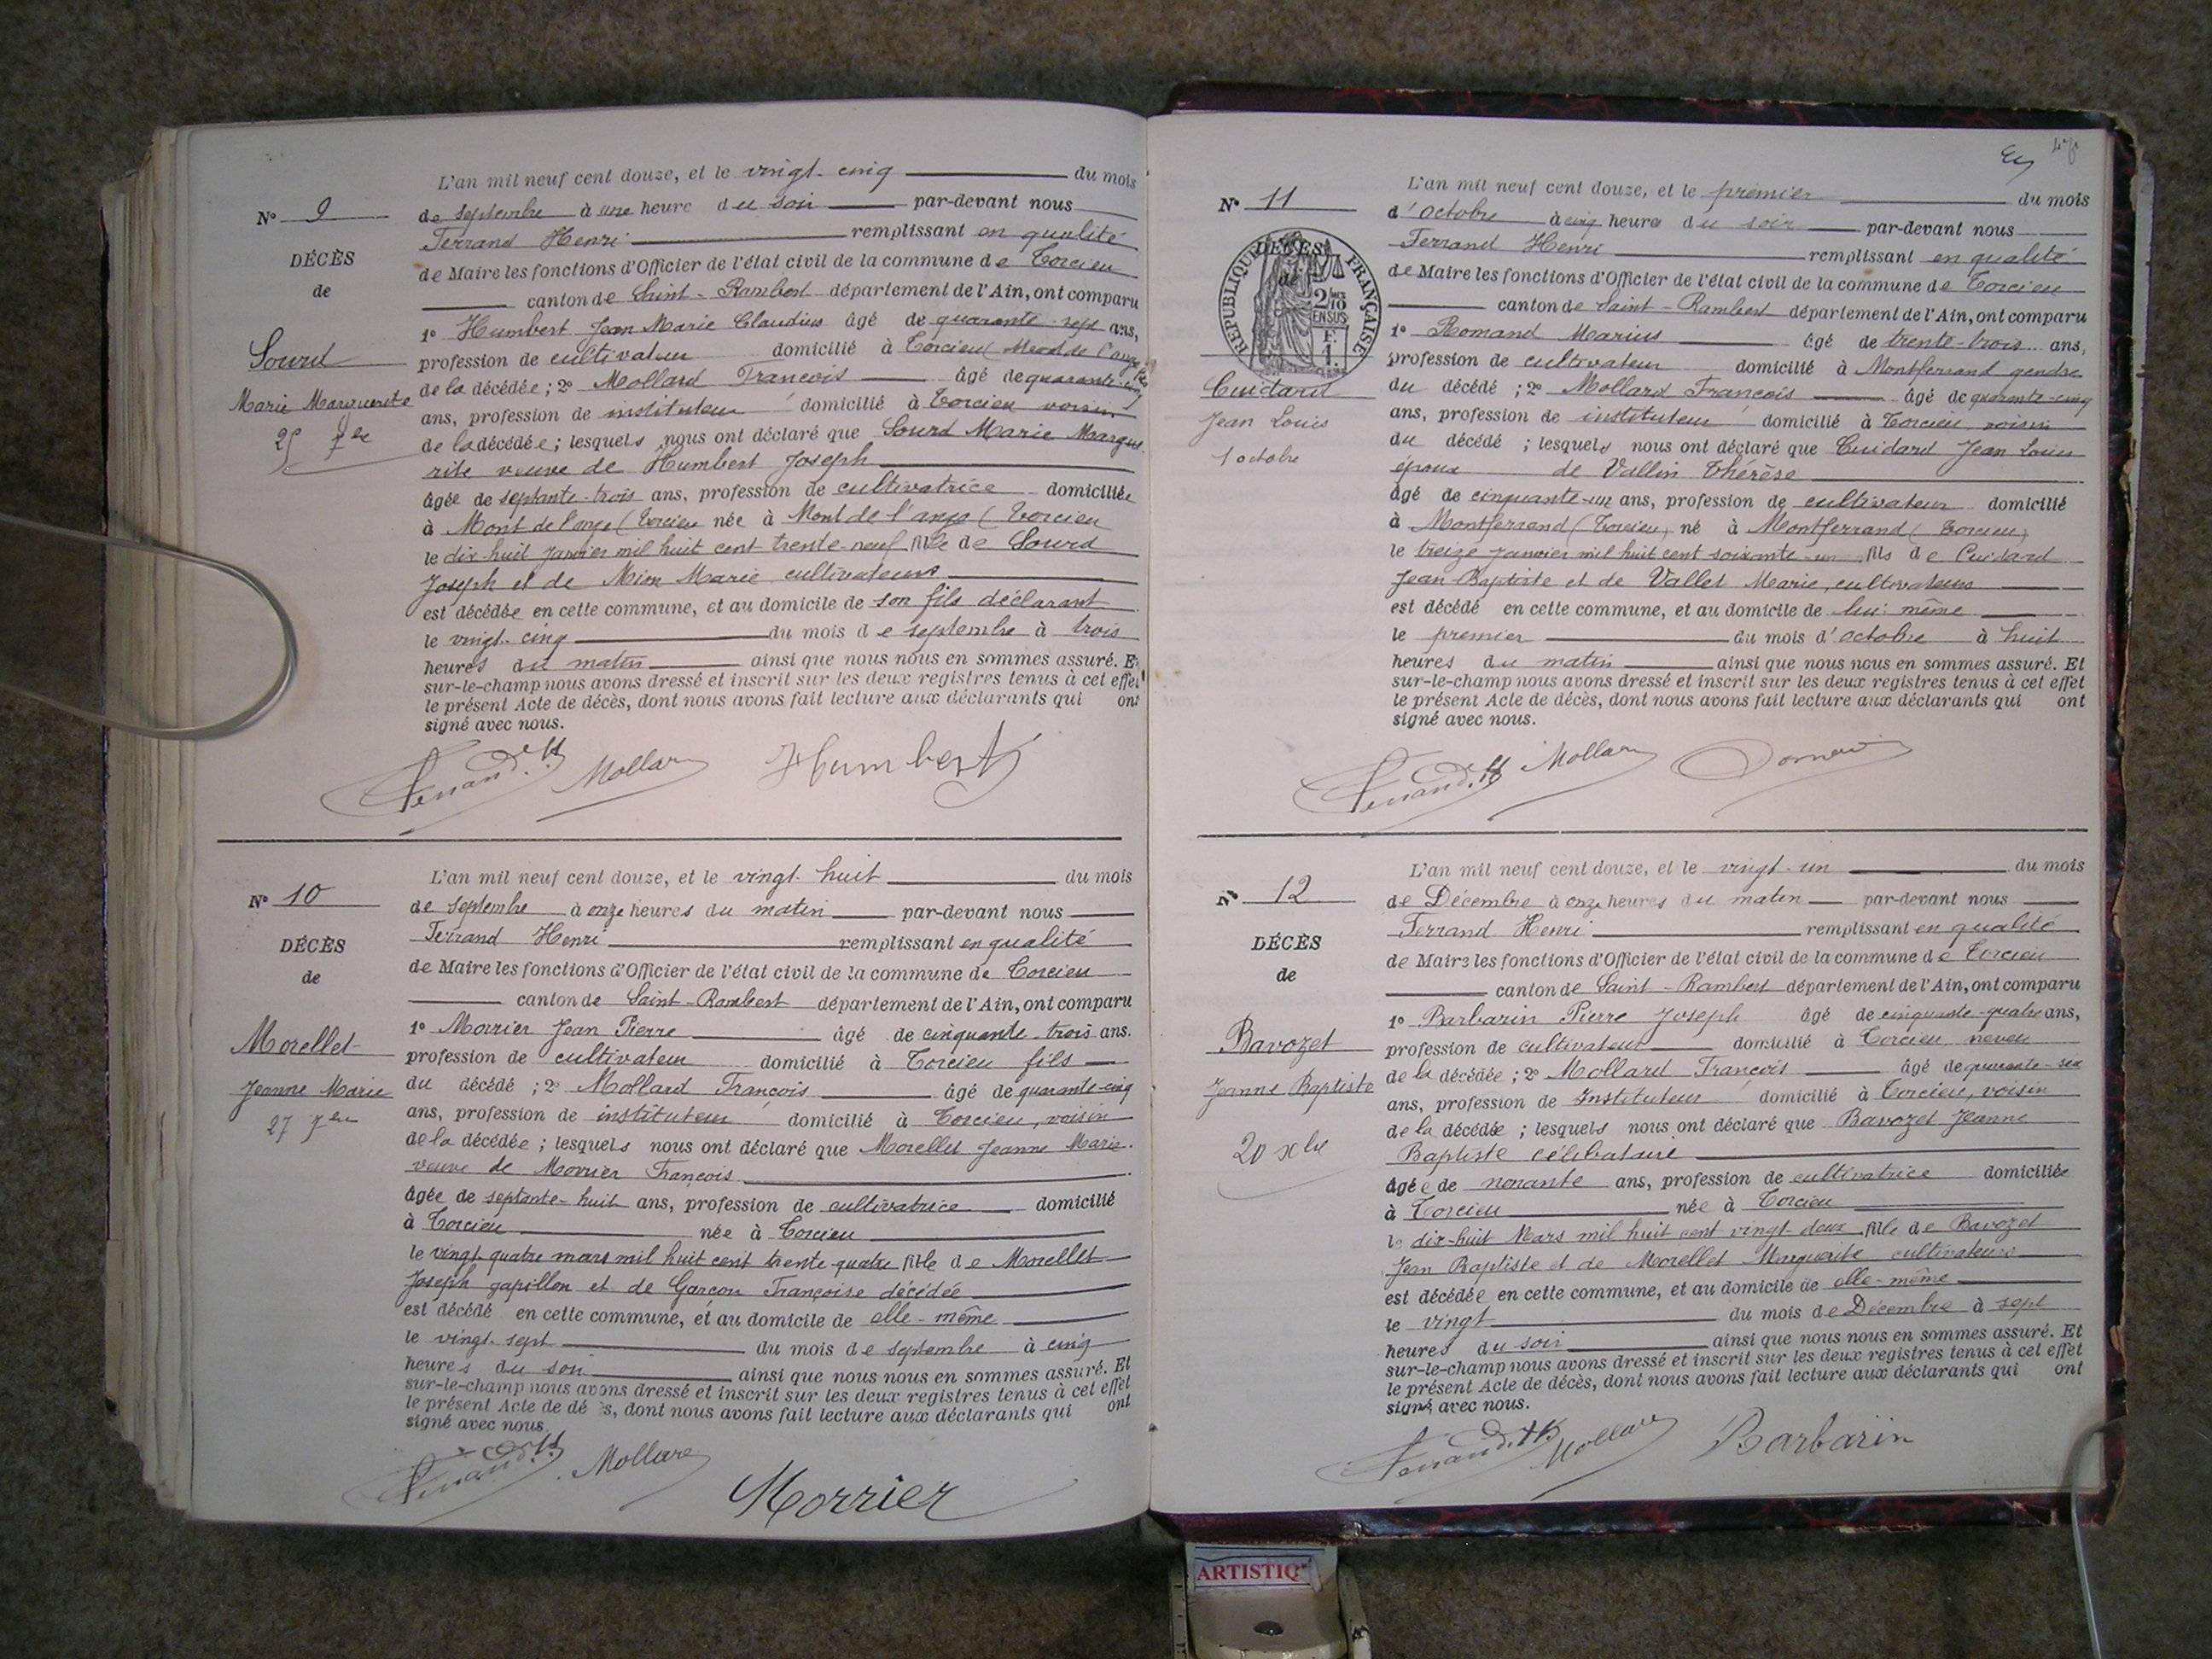 L'an mil neuf cent douze, et le vingt-cinq du mois
N° 9
de septembre à une heure du soir par-devant nous
Ferrand Henri remplissant en qualité
DÉCÈS
de Maire les fonctions d'Officier de l'état civil de la commune de Torcieu
de
canton de Saint-Rambert département de l'Ain, ont comparu
1° Humbert Jean Marie Claudius âgé de quarante-sept ans,
Sourd
profession de cultivateur domicilié à Torcieu Mont de l'ange fils
Marie Marguerite
de la décédée; 2° Mollard François âgé de quarante-cinq
25 7bre
ans, profession de instituteur domicilié à Torcieu voisin
de la décédée; lesquels nous ont déclaré que Sourd Marie Margue
rite veuve de Humbert Joseph
âgée de septante-trois ans, profession de cultivatrice domiciliée
à Mont de l'ange (Torcieu née à Mont de l'ange (Torcieu
le dix huit janvier mil huit cent trente-neuf fille de Sourd
Joseph et de Marie cultivateurs
est décédée en cette commune, et au domicile de son fils déclarant
le vingt-cinq du mois de septembre à trois
heures du matin ainsi que nous nous en sommes assuré. Et
sur-le-champ nous avons dressé et inscrit sur les deux registres tenus à cet effet
le présent Acte de décès, dont nous avons fait lecture aux déclarants qui ont
signé avec nous.
Ferrand. H Mollard Humbert
L'an mil neuf cent douze, et le vingt-huit du mois
N° 10
de septembre à onze heures du matin par-devant nous
Ferrand Henri remplissant en qualité
DÉCÈS
de Maire les fonctions d'Officier de l'état civil de la commune de Torcieu
de
canton de Saint-Rambert département de l'Ain, ont comparu
1° Morrier Jean Pierre âgé de cinquante-trois ans.
Morellet
profession de cultivateur domicilié à Torcieu fils
Jeanne Marie
du décédé; 2° Mollard François âgé de quarante-cinq
27 7bre
ans, profession de instituteur domicilié à Torcieu, voisin
de la décédée; lesquels nous ont déclaré que Morellet Jeanne Marie
veuve de Morrier François
âgée de septante-huit ans, profession de cultivatrice domicilié
à Torcieu née à Torcieu
le vingt-quatre mars mil huit cent trente-quatre fille de Morellet
Joseph papillon et de Garçon Françoise décédée
est décédé en cette commune, et au domicile de elle-même
le vingt-sept du mois de septembre à cinq
heures du soir ainsi que nous nous en sommes assuré. Et
sur-le-champ nous avons dressé et inscrit sur les deux registres tenus à cet effet
le présent Acte de décès, dont nous avons fait lecture aux déclarants qui ont
signé avec nous
Ferrand. H Mollard Morrier
L'an mil neuf cent douze, et le premier du mois
N° 11
d'octobre à cinq heures du soir par-devant nous
Ferrand Henri remplissant en qualité
DÉCÈS
de
RÉPUBLIQUE FRANÇAISE
2/10 EN SUS
F. 1.
de Maire les fonctions d'Officier de l'état civil de la commune de Torcieu
canton de Saint-Rambert département de l'Ain, ont comparu
1° Romand Marius âgé de trente-trois ans,
profession de cultivateur domicilié à Montferrand gendre
Cuidard
du décédé; 2° Mollard François âgé de quarante-cinq
Jean Louis
ans, profession de instituteur domicilié à Torcieu, voisin
1 octobre
du décédé; lesquels nous ont déclaré que Cuidard Jean Louis
époux de Vallin Thérèse
âgé de cinquante-un ans, profession de cultivateur domicilié
à Montferrand (Torcieu) né à Montferrand (Torcieu)
le treize janvier mil huit cent soixante-un fils de Cuidard
Jean-Baptiste et de Vallet Marie, cultivateurs
est décédé en cette commune, et au domicile de lui-même
le premier du mois d'octobre à huit
heures du matin ainsi que nous nous en sommes assuré. Et
sur-le-champ nous avons dressé et inscrit sur les deux registres tenus à cet effet
le présent Acte de décès, dont nous avons fait lecture aux déclarants qui ont
signé avec nous.
Ferrand. H Mollard
L'an mil neuf cent douze, et le vingt-un du mois
N° 12
de Décembre à onze heures du matin par-devant nous
Ferrand Henri remplissant en qualité
DÉCÈS
de Maire les fonctions d'Officier de l'état civil de la commune de Torcieu
de
canton de Saint-Rambert département de l'Ain, ont comparu
1° Barbarin Pierre Joseph âgé de cinquante-quatre ans,
Bavozet
profession de cultivateur domicilié à Torcieu neveu
Jeanne Baptiste
de la décédée; 2° Mollard François âgé de quarante-six
ans, profession de Instituteur domicilié à Torcieu, voisin
20 xbre
de la décédée; lesquels nous ont déclaré que Bavozet Jeanne
Baptiste célibataire
âgée de nonante ans, profession de cultivatrice domiciliée
à Torcieu née à Torcieu
le dix-huit Mars mil huit cent vingt-deux fille de Bavozet
Jean Baptiste et de Morellet Marguerite cultivateurs
est décédée en cette commune, et au domicile de elle-même
le vingt du mois de Décembre à sept
heures du soir ainsi que nous nous en sommes assuré. Et
sur-le-champ nous avons dressé et inscrit sur les deux registres tenus à cet effet
le présent Acte de décès, dont nous avons fait lecture aux déclarants qui ont
signé avec nous.
Ferrand. H Mollard Barbarin
ARTISTIQ